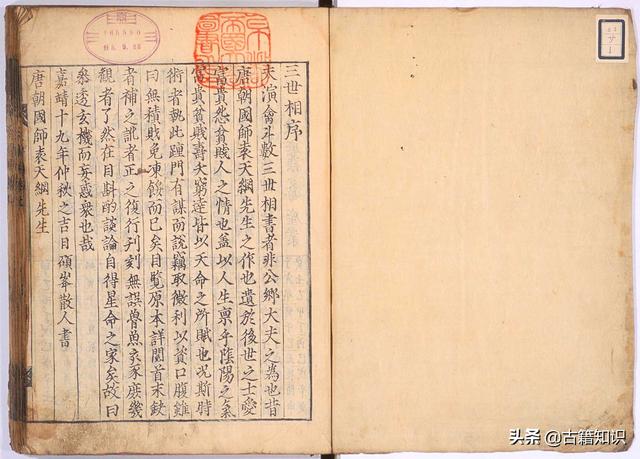 三世相序
夫演禽斗數三世相書者非公卿大夫之為也昔
唐朝國師袁天綱先生之作也遺於後世之士愛
富貴怨貧賤人之情也蓋以人生稟乎陰陽之氣
富貴貧賤壽夭窮達皆以天命之所賦也況斯時
術者執此踵門有謀而說竊取微利以資口腹雖
曰無積賤免凍餒而已矣目覽原本詳閱首末缺
者補之訛者正之復行刊刻無誤魯魚亥豕庶幾
觀者了然在目斟酌談論自得星命之家矣故曰
參透玄機而妄惑衆也哉
嘉靖十九年仲秋之吉日碩峯散人書
唐朝國師袁天綱先生
头条 @古籍知识